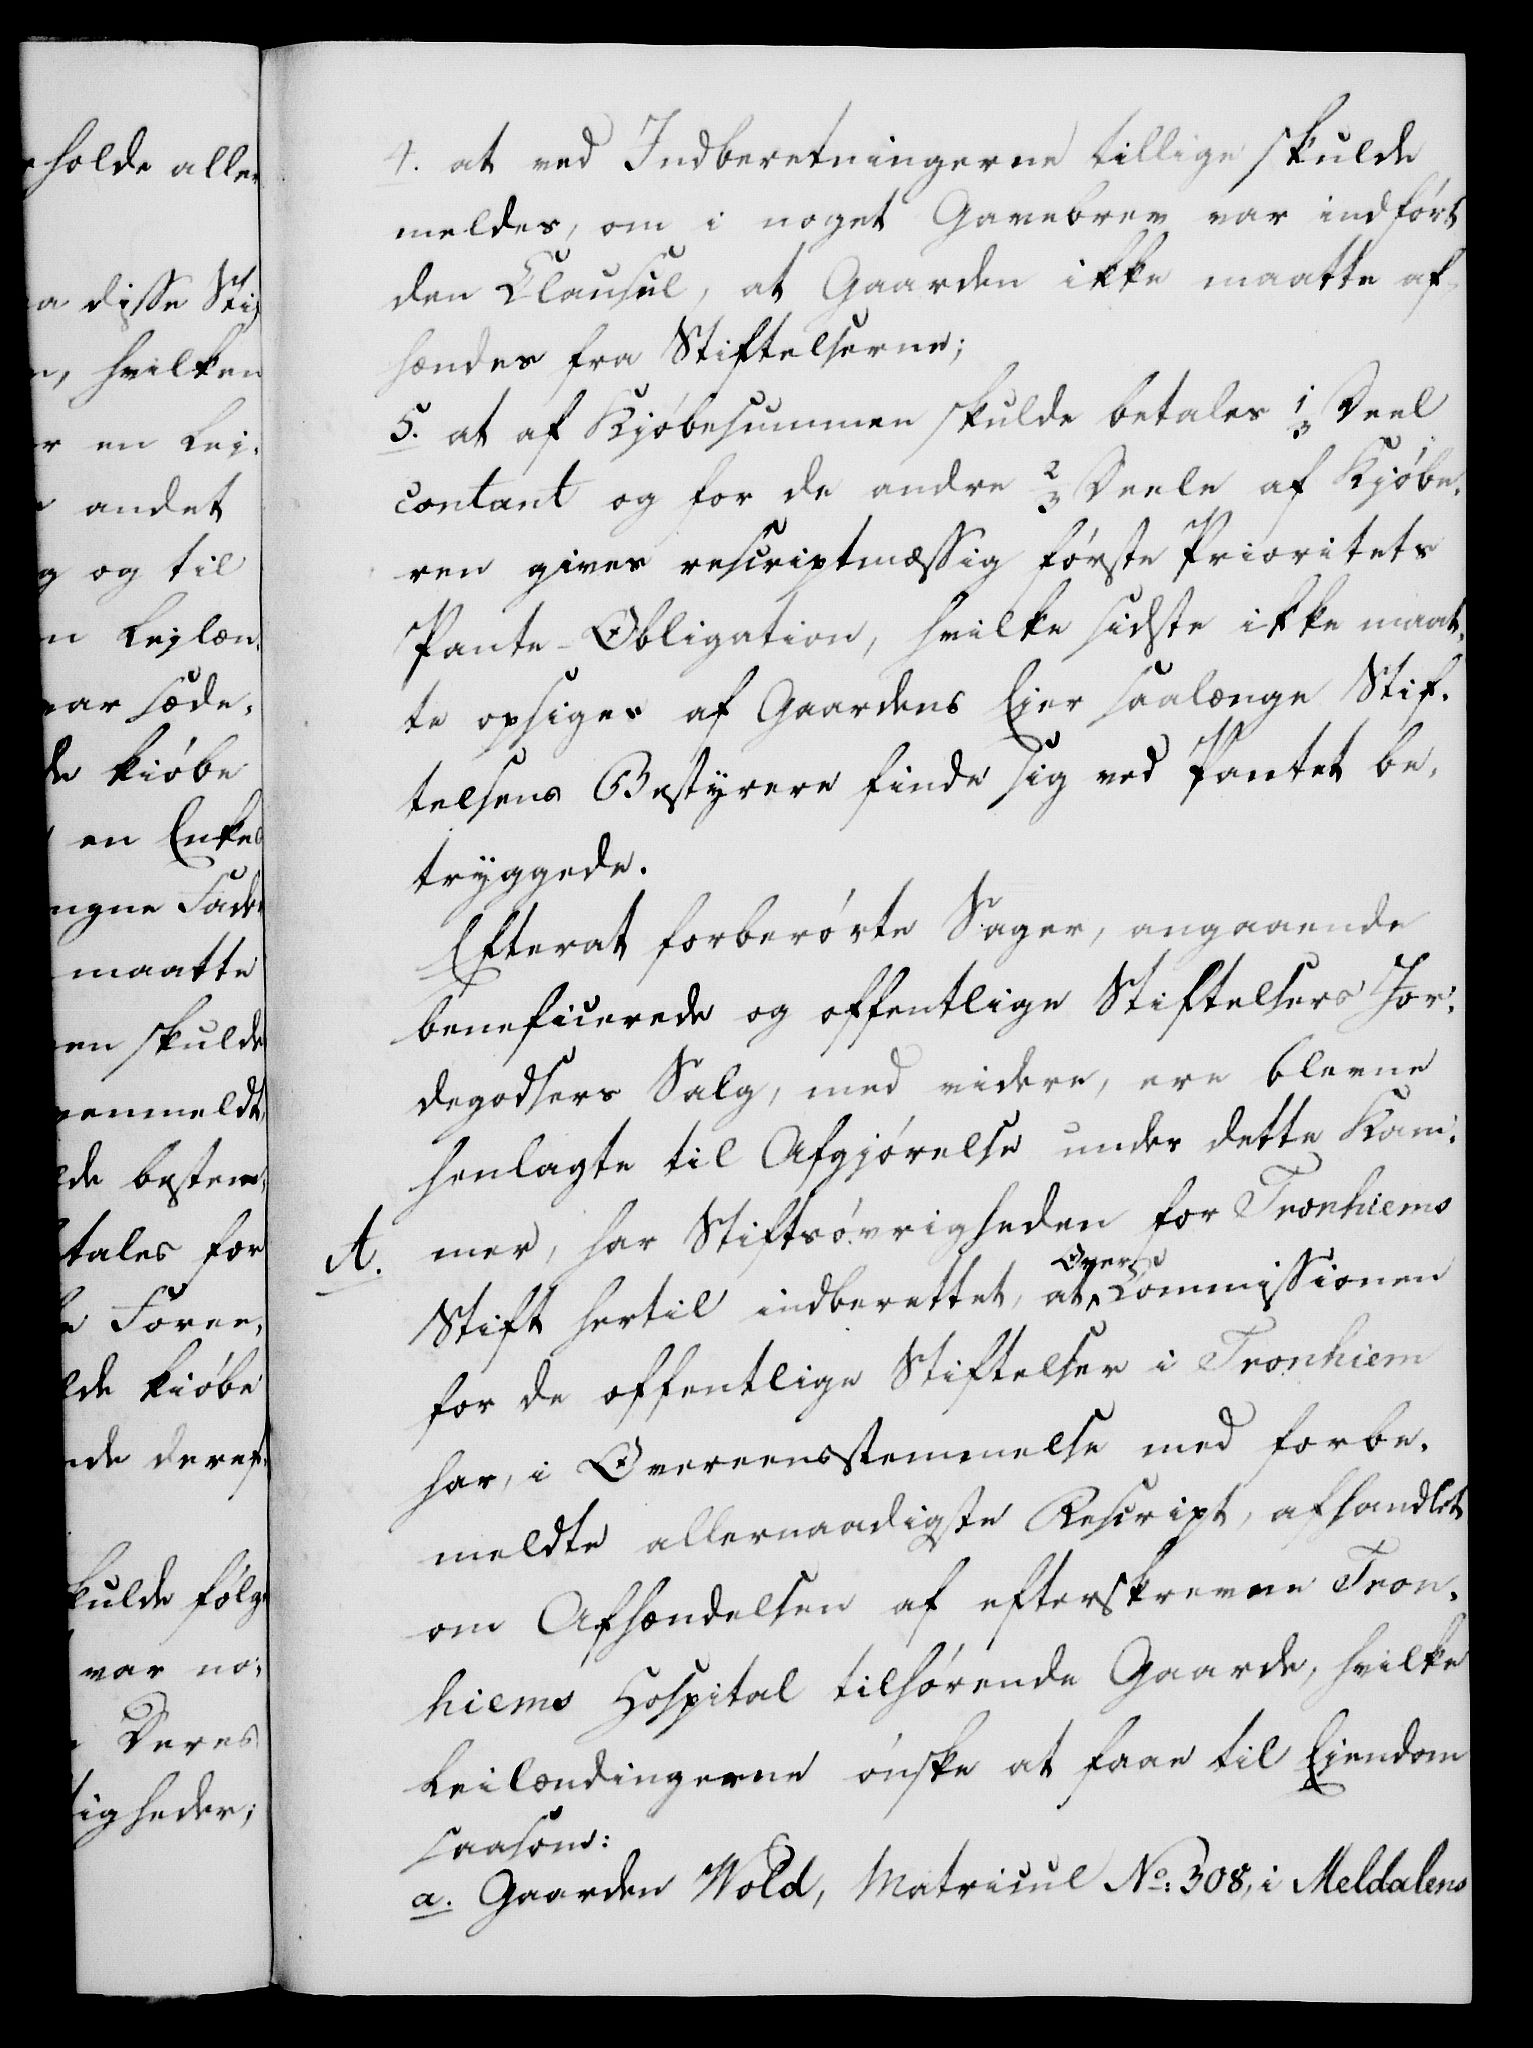 holde aller
a disse Stif
n, hvilken
r en Lei-
andet
g og til
n Leilæn-
var sæde-
de kiøbe
en Enkes
ngne Fader
maatte
en skulde
venmeldt,
lde bestem-
tales for
Foree,
lde kiøbe
nde deref-
kulde følge
var no-
Deres
igheder;
4. at ved Indberetningerne tillige skulde
meldes, om i noget Gavebrev var indført
den Clausul, at Gaarden ikke maatte af-
hændes fra Stiftelserne;
5. at af Kjøbesummen skulde betales 1/3 Deel
contant og for de andre 2/3 Deele af Kjøbe-
ren gives rescriptmæssig første Prioritets
Pante-Obligation, hvilke sidste ikke maat-
te opsiges af Gaardens Eier saalænge Stif-
telsens Bestyrere finde sig ved Pantet be-
tryggede.
Efterat forberørte Sager, angaaende
beneficerede og offentlige Stiftelsers Jor-
degodsers Salg, med videre, ere blevne
henlagte til Afgjørelse under dette Kam-
A. mer, har Stiftsøvrigheden for Tronhiems
Stift hertil indberettet, at Over Commissionen
for de offentlige Stiftelser i Tronhiem
har, i Overeensstemmelse med forbe-
meldte allernaadigste Rescript, afhandlet
om Afhændelsen af efterskrevne Tron-
hiems Hospital tilhørende Gaarde, hvilke
Leilændingerne ønske at faae til Eiendom
saasom:
a. Gaarden Wold, Matricul No: 308, i Meldalens